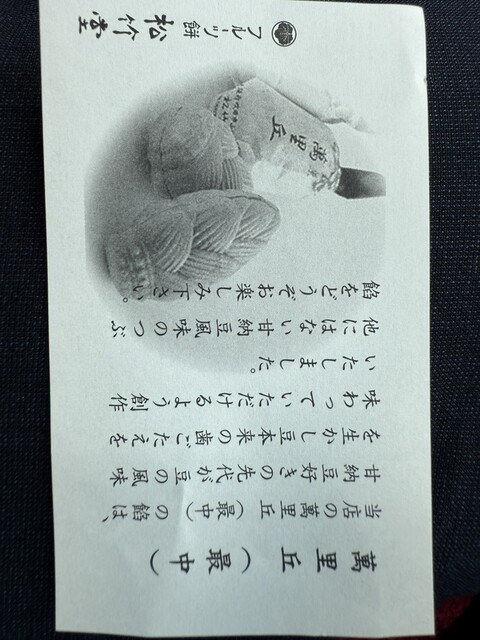 萬里丘(最中)
当店の萬里丘(最中)の餡は、
甘納豆好きの先代が豆の風味
を生かし豆本来の歯ごたえを
味わっていただけるよう創作
いたしました。
他にはない甘納豆風味のつぶ
餡をどうぞお楽しみ下さい。
萬里丘
フルーツ餅 松竹堂